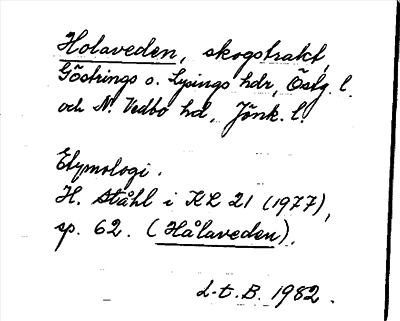 Holaveden, skogstrakt,
Göstrings o. Lysings hdr, Östg. l.
och N. Vedbo hd, Jönk. l.
Etymologi.
H. Ståhl i KL 21 (1977),
sp. 62. (Hålaveden).
L-t. B. 1982.